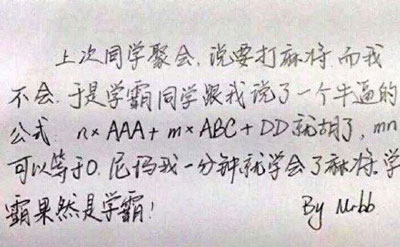 上次同学聚会, 说要打麻将, 而我
不会. 于是学霸同学跟我说了一个牛逼的
公式: n×AAA+m×ABC+DD就胡了, mn
可以等于0. 尼玛我一分钟就学会了麻将. 学
霸果然是学霸!
By